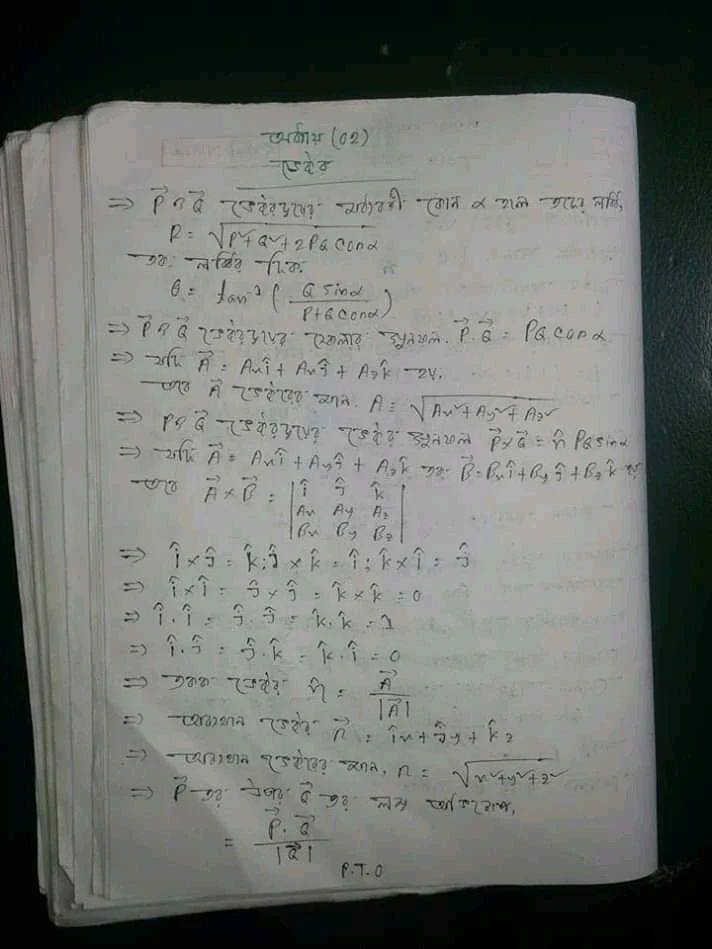 অধ্যায় (02)
ভেক্টর
⇒ P⃗ ও Q⃗ ভেক্টরদ্বয়ের মধ্যবর্তী কোন α হলে তাদের লব্ধি,
R = √(P²+Q²+2PQ cosα)
এবং লব্ধির দিক
θ = tan⁻¹ (Q sinα / P+Q cosα)
⇒ P⃗ ও Q⃗ ভেক্টরদ্বয়ের স্কেলার গুনফল. P⃗.Q⃗ = PQ cosα
⇒ যদি A⃗ = Axî + Axĵ + Azk̂ হয়.
তবে A⃗ ভেক্টরের মান. A = √(Ax²+Ay²+Az²)
⇒ P ও Q⃗ ভেক্টরদ্বয়ের ভেক্টর গুনফল P⃗×Q⃗ = n̂ PQ sinα
⇒ যদি A⃗ = Axî + Ayĵ + Azk̂ এবং B⃗ = Bxî + Byĵ + Bzk̂ হয়
তবে A⃗×B⃗ = | î ĵ k̂ |
| Ax Ay Az |
| Bx By Bz |
⇒ î×ĵ = k̂; ĵ×k̂ = î; k̂×î = ĵ
⇒ î×î = ĵ×ĵ = k̂×k̂ = 0
⇒ î.î = ĵ.ĵ = k̂.k̂ = 1
⇒ î.ĵ = ĵ.k̂ = k̂.î = 0
⇒ একক ভেক্টর n̂ = A⃗ / |A⃗|
⇒ অবস্থান ভেক্টর r⃗ = îx + ĵy + k̂z
⇒ অবস্থান ভেক্টরের মান, r = √(x²+y²+z²)
⇒ P⃗ এর উপর Q⃗ এর লম্ব অভিক্ষেপ,
= P⃗.Q⃗ / |Q⃗|
P.T.O